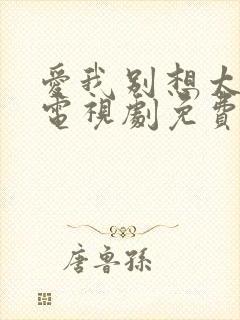 愛我別想太
電視劇免費
唐魯孫